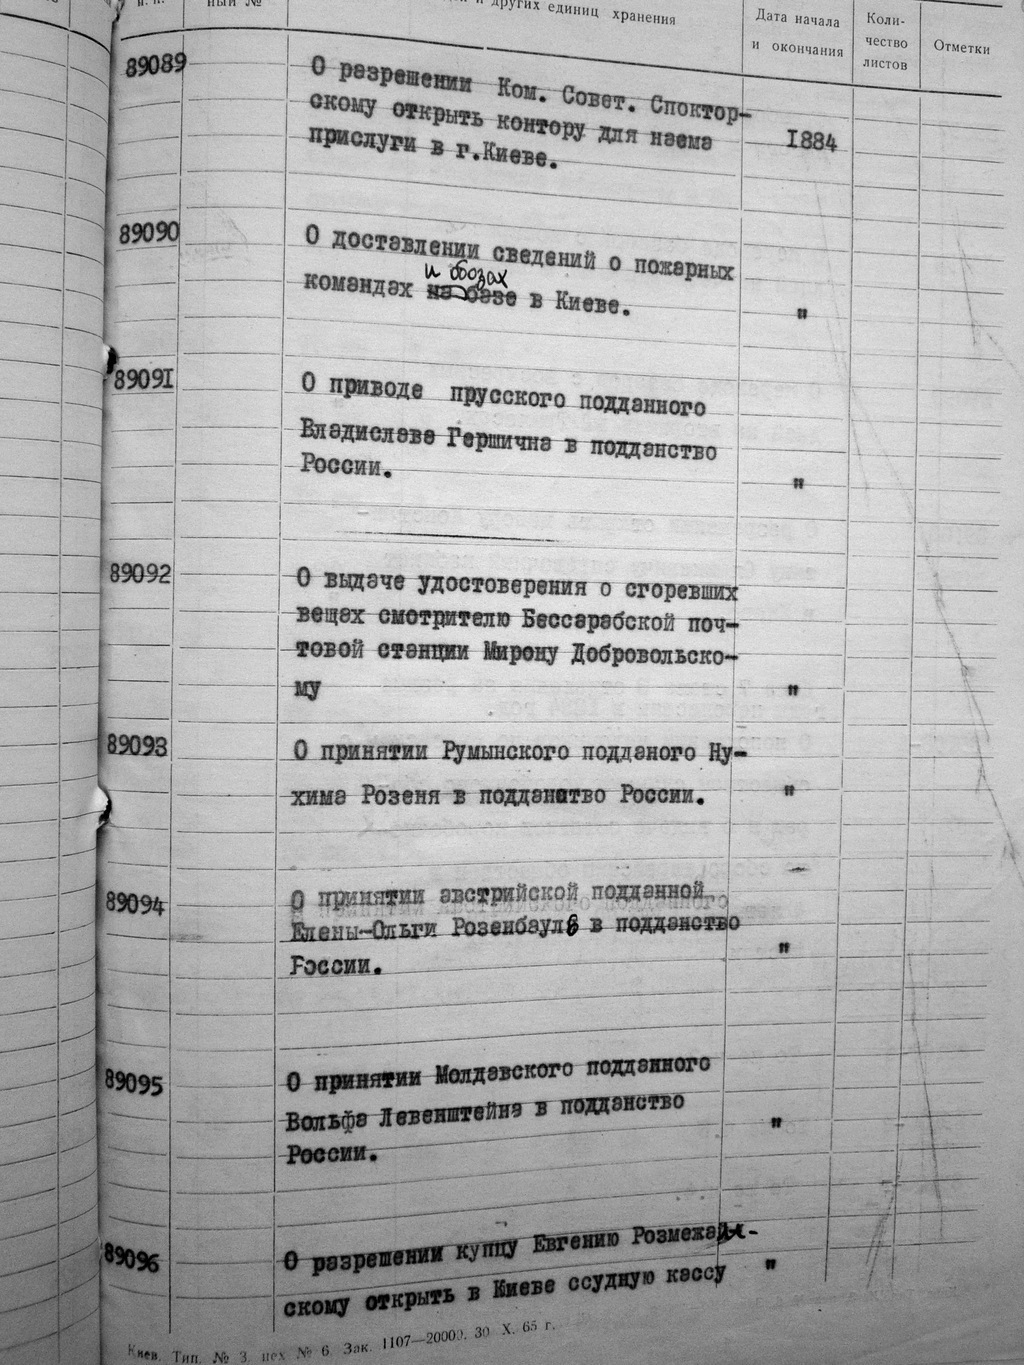 п. п.
ный №
и других единиц хранения
Дата начала
и окончания
Коли-
чество
листов
Отметки
89089
О разрешении Ком. Совет. Споктор-
скому открыть контору для наема
прислуги в г.Киеве.
1884
89090
О доставлении сведений о пожарных
и обозах
командах на базе в Киеве.
"
89091
О приводе прусского подданного
Владислава Гершична в подданство
России.
"
89092
О выдаче удостоверения о сгоревших
вещах смотрителю Бессарабской поч-
товой станции Мирону Добровольско-
му
"
89093
О принятии Румынского подданого Ну-
хима Розеня в подданство России.
"
89094
О принятии австрийской подданной
Елены-Ольги Розенбаулв в подданство
России.
"
89095
О принятии Молдавского подданного
Вольфа Левенштейна в подданство
России.
"
89096
О разрешении купцу Евгению
скому открыть в Киеве ссудную кассу
"
Киев. Тип. № 3, цех № 6. Зак. 1107—20000. 30 X. 65 г.